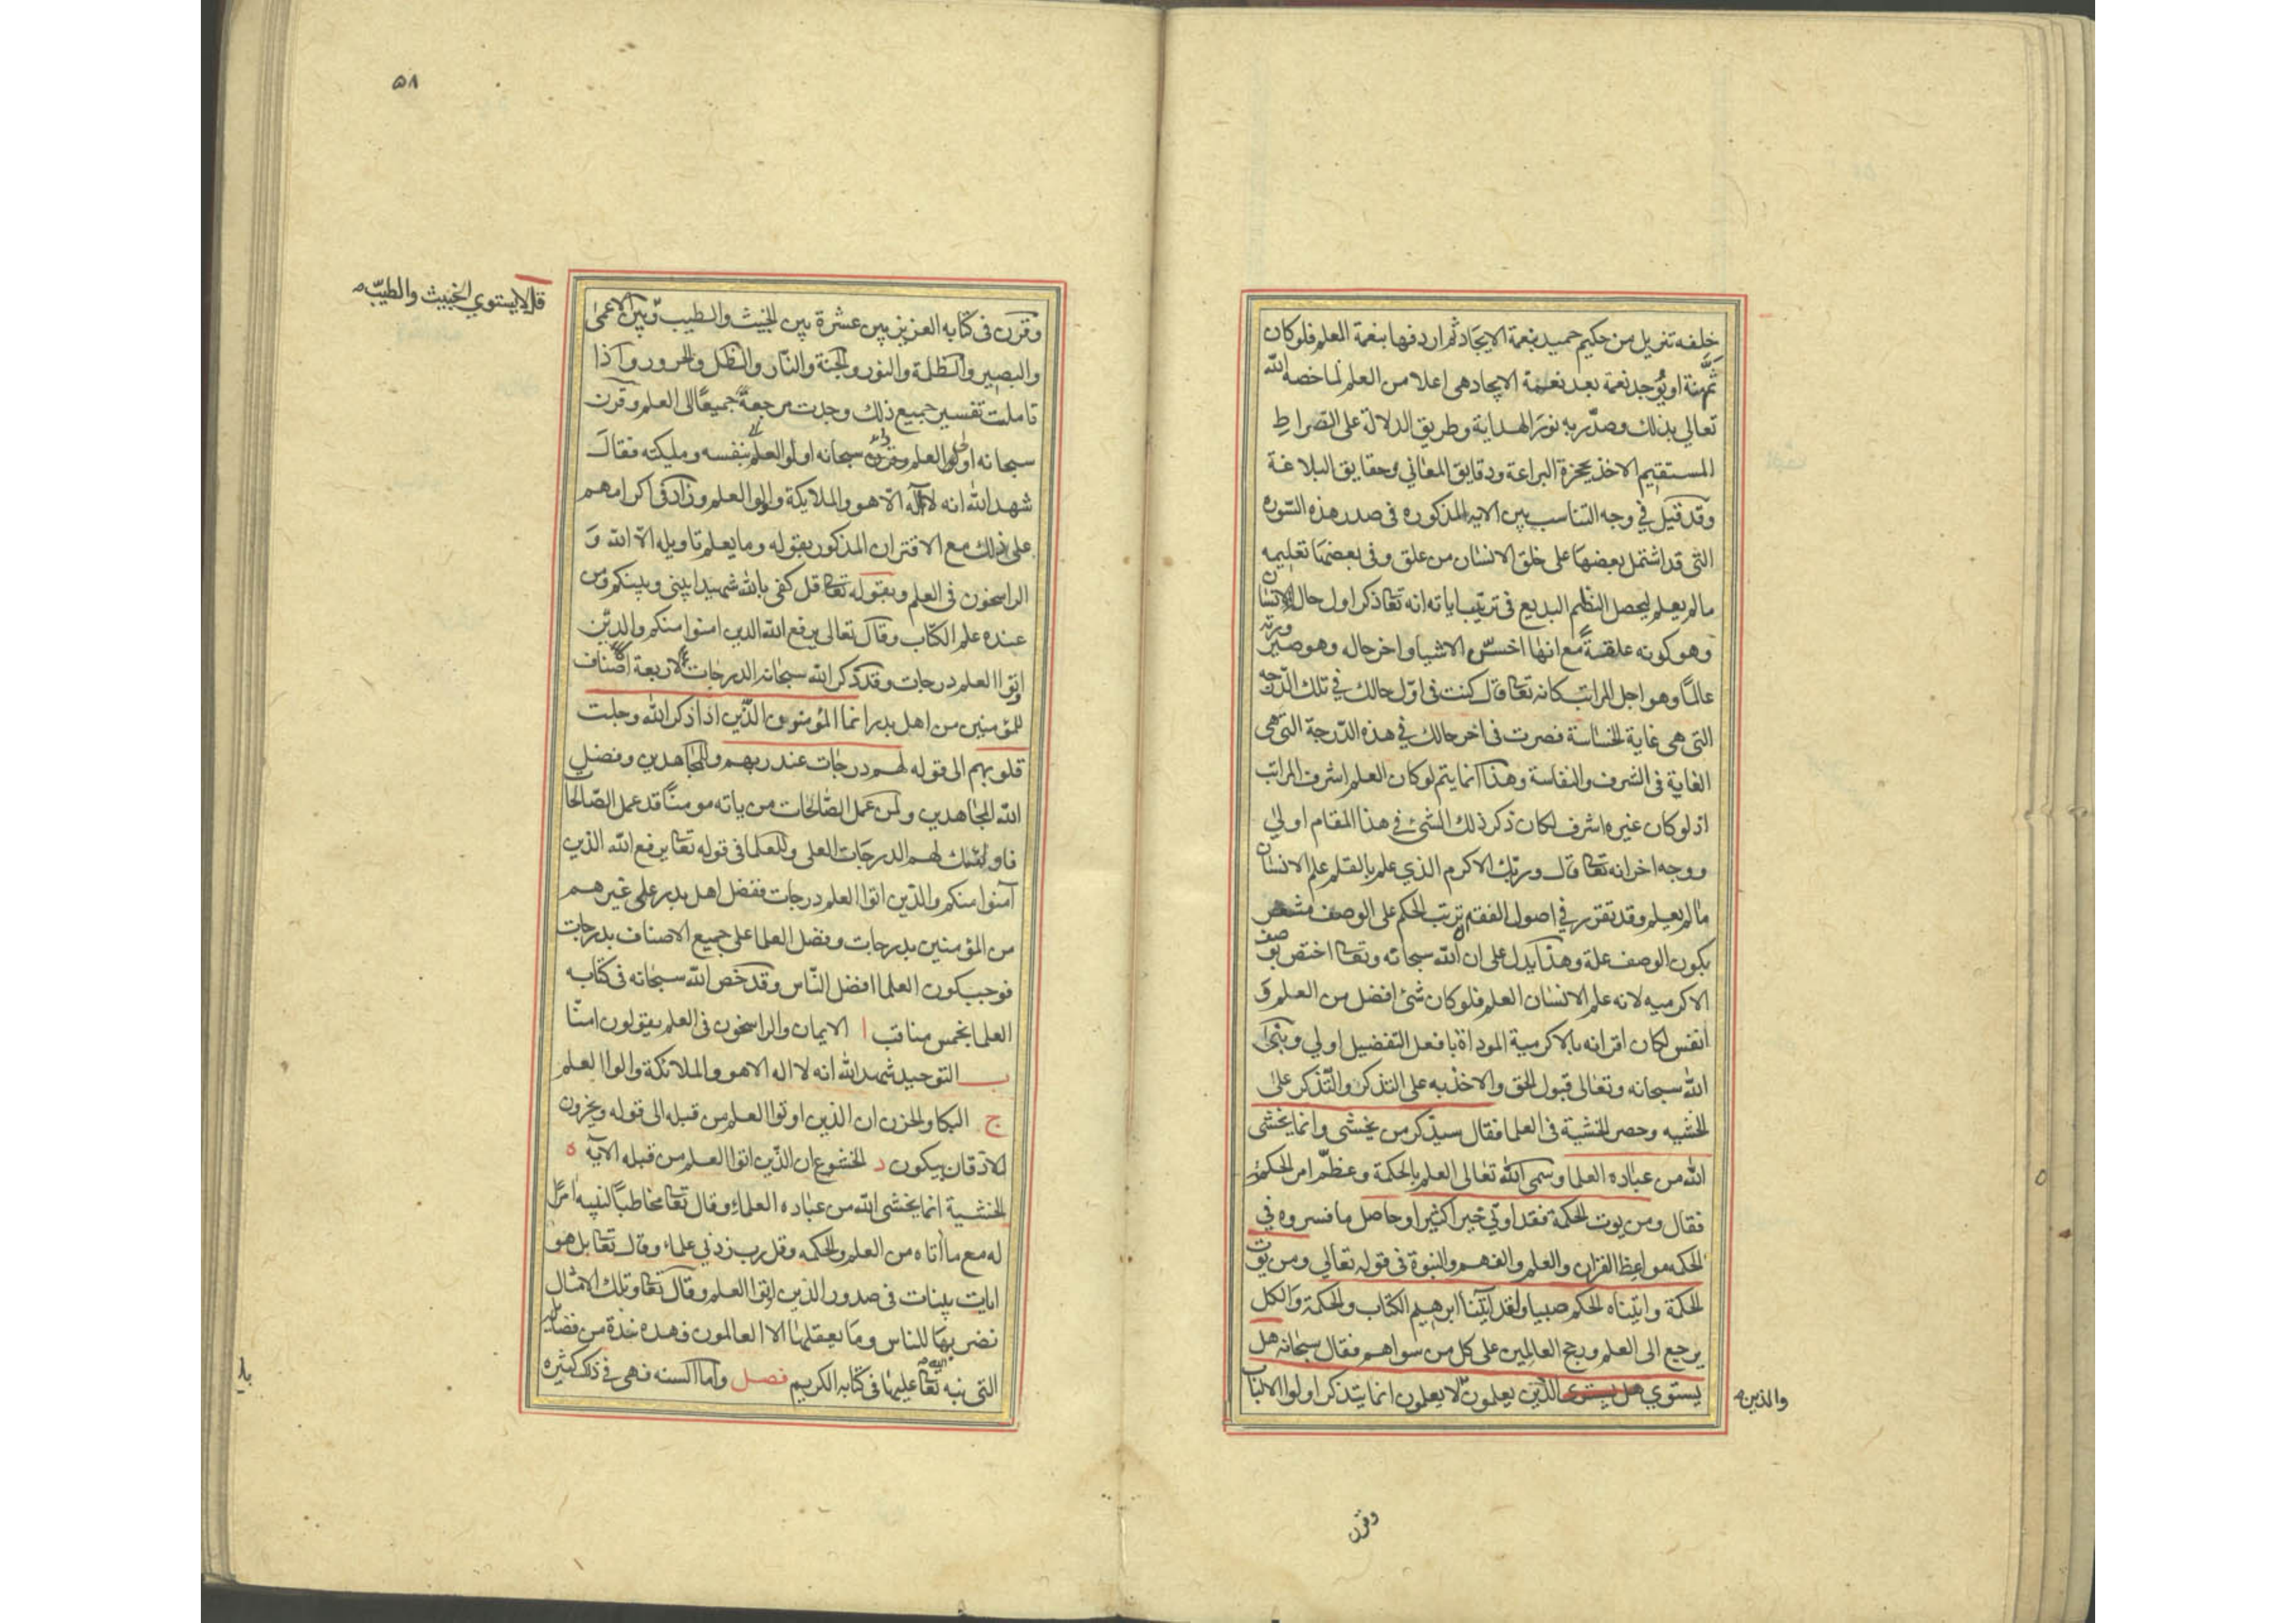 خلفه تنزيل من حكيم حميد بنعمة الايجاد ثم اردفها بنعمة العلم فلو كان
ثمّ منة او يوجد نعمة بعد نعمة الايجاد هى اعلا من العلم لما خصه الله
تعالى بذلك وصدّر به نور الهداية وطريق الدلالة على الصّراطِ
المستقيم الاخذ بحجزة البراعة ودقايق المعاني وحقايق البلاغة
وقد قيل في وجه التناسب بين الاية المذكوره فى صدر هذه السّوره
التى قد اشتمل بعضها على خلق الانسان من علق وفى بعضها تعليمه
مالم يعلم ليحصل النظم البديع فى ترتيب اياته انه تعا ذكر اول حال الانسان
وهو كونه علقةً مع انها اخسّ الاشيا واخر حاله وهو صيرورته
عالمًا وهو اجل المراتب كانه تعا قال كنت فى اوّل حالك في تلك الدّرجه
التى هى غاية الخساسة فصرت فى اخر حالك في هذه الدّرجة التى هى
الغاية فى الشرف والنفاسة وهذا انما يتم لو كان العلم اشرف المراتب
اذ لو كان غيره اشرف لكان ذكر ذلك الشئ في هذا المقام اولي
ووجه اخر انه تعا قال وربك الاكرم الذي علم بالقلم علم الانسان
مالم يعلم وقد تقرر في اصول الفقه ترتب الحكم على الوصف مشعر
بكون الوصف علة وهذا يدل على ان الله سبحانه وتعا اختص بوصف
الاكرميه لانه علم الانسان العلم فلو كان شئ افضل من العلم و
انفس لكان اقرانه بالاكرمية المؤداة بافعل التفضيل اولي وبنى
الله سبحانه وتعالى قبول الحق والاخذ به على التذكر والتذكر على
الخشيه وحصر الخشية فى العلما فقال سيذكر من يخشى وانما يخشى
الله من عباده العلما وسمى الله تعالى العلم بالحكمة وعظّم امر الحكمة
فقال ومن يوت الحكمة فقد اوتي خيرا كثيرا وحاصل ما فسروه في
الحكمة مواعظ القرآن والعلم والفهم والنبوة فى قوله تعالي ومن يوت
الحكمة وايتناه الحكم صبيا ولقد اتينا ال ابرهيم الكتاب والحكمة والكل
يرجع الى العلم ورجح العالمين على كل من سواهم فقال سبحانه هل
يستوي هل يستوى الذين يعلمون لا يعلمون انما يتذكر اولوا الالباب
والذين
وقرن
۵۸
قل لا يستوي الخبيث والطيّب
وقرن فى كتابه العزيز بين عشرة بين الخبيث والطيب وبين الاعمى
والبصير والظلمة والنور والجنة والنار والظل والحرور واذا
تاملت تفسير جميع ذلك وجدت مرجعه جميعًا الى العلم وقرن
سبحانه اولوا العلم وقرن سبحانه اولوا العلم بنفسه ومليكته فقال
شهد الله انه لا اله الاّ هو والملايكة واولوا العلم وزاد فى اكرامهم
على ذلك مع الاقتران المذكور بقوله وما يعلم تاويله الاّ الله وَ
الراسخون فى العلم وبقوله تعا قل كفى بالله شهيدا بينى وبينكم ومن
عنده علم الكتاب وقال تعالى يرفع الله الذين امنوا منكم والذين
اوتوا العلم درجات وقد ذكر الله سبحانه الدرجات لاربعة اصناف
للمؤمنين من اهل بدر انما المؤمنون الذين اذا ذكر الله وجلت
قلوبهم الى قوله لهم درجات عند ربهم وللمجاهدين وفضل
الله المجاهدين ولمن عمل الصّالحات من ياته مومنًا قد عمل الصّالحات
فاولئك لهم الدرجات العلى وللعلما فى قوله تعا يرفع الله الذين
آمنوا منكم والذين اتوا العلم درجات ففضل اهل بدر على غيرهم
من المؤمنين بدرجات وفضل العلما على جميع الاصناف بدرجات
فوجب كون العلما افضل النّاس وقد خص الله سبحانه فى كتابه
العلما بخمس مناقب ا الايمان والراسخون فى العلم يقولون امنّا
ب التوحيد شهد الله انه لا اله الا هو والملائكة واولوا العلم
ج البكا والحزن ان الذين اوتوا العلم من قبله الى قوله ويخرون
للاذقان يبكون د الخشوع ان الذين اتوا العلم من قبله الآية ه
الخشية انما يخشى الله من عباده العلماء وقال تعا مخاطبًا لنبيه امرًا
له مع ما اتاه من العلم والحكمه وقل رب زدني علما وقال تعا بل هو
ايات بينات فى صدور الذين اوتوا العلم وقال تعا وتلك الامثال
نضربها للناس وما يعقلها الا العالمون فهذه نبذة من فضايله
التى نبه الله تعا عليها فى كتابه الكريم فصل واما السنه فهى في ذلك كثيره